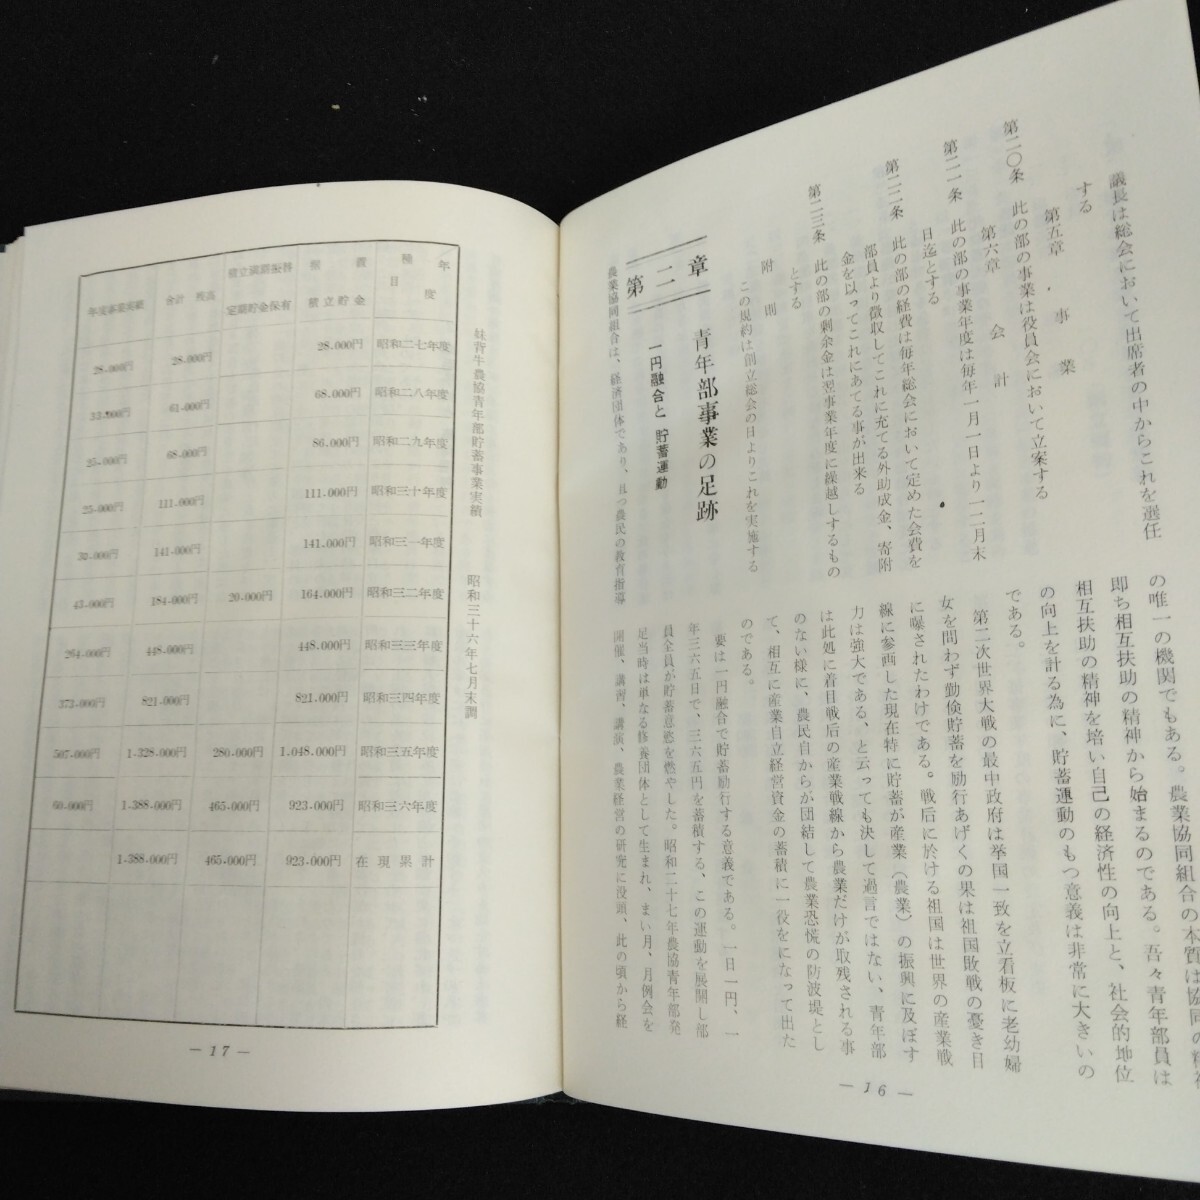 議長は総会において出席者の中からこれを選任
する
第五章 事業
第二〇条 此の部の事業は役員会において立案する
第六章 会計
第二一条 此の部の事業年度は毎年一月一日より一二月末
日迄とする
第二二条 此の部の経費は毎年総会において定めた会費を
部員より徴収してこれに充てる外助成金、寄附
金を以ってこれにあてる事が出来る
第二三条 此の部の剰余金は翌事業年度に繰越しするもの
とする
附則
この規約は創立総会の日よりこれを実施する
第二章 青年部事業の足跡
一円融合と貯蓄運動
農業協同組合は、経済団体であり、且つ農民の教育指導
の唯一の機関でもある。農業協同組合の本質は協同の精神
即ち相互扶助の精神から始まるのである。吾々青年部員は
相互扶助の精神を培い自己の経済性の向上と、社会的地位
の向上を計る為に、貯蓄運動のもつ意義は非常に大きいの
である。
第二次世界大戦の最中政府は挙国一致を立看板に老幼婦
女を問わず勤倹貯蓄を励行あげくの果は祖国敗戦の憂き目
に曝されたわけである。戦后に於ける祖国は世界の産業戦
線に参画した現在特に貯蓄が産業（農業）の振興に及ぼす
力は強大である、と云っても決して過言ではない、青年部
は此処に着目戦后の産業戦線から農業だけが取残される事
のない様に、農民自からが団結して農業恐慌の防波堤とし
て、相互に産業自立経営資金の蓄積に一役をになって出た
のである。
要は一円融合で貯蓄励行する意義である。一日一円、一
年三六五日で、三六五円を蓄積する、この運動を展開し部
員全員が貯蓄意慾を燃やした。昭和二十七年農協青年部発
足当時は単なる修養団体として生まれ、まい月、月例会を
開催、講習、講演、農業経営の研究に没頭、此の頃から経
— 16 —
妹背牛農協青年部貯蓄事業実績 昭和三十六年七月末調
年度 種目 据置積立貯金 積立満期振替定期貯金保有 合計残高 年度事業実績
昭和二七年度 28.000円 28.000円 28.000円
昭和二八年度 68.000円 61.000円 33.000円
昭和二九年度 86.000円 68.000円 25.000円
昭和三十年度 111.000円 111.000円 25.000円
昭和三一年度 141.000円 141.000円 30.000円
昭和三二年度 164.000円 20.000円 184.000円 43.000円
昭和三三年度 448.000円 448.000円 264.000円
昭和三四年度 821.000円 821.000円 373.000円
昭和三五年度 1.048.000円 280.000円 1.328.000円 507.000円
昭和三六年度 923.000円 465.000円 1.388.000円 60.000円
在現累計 923.000円 465.000円 1.388.000円
— 17 —